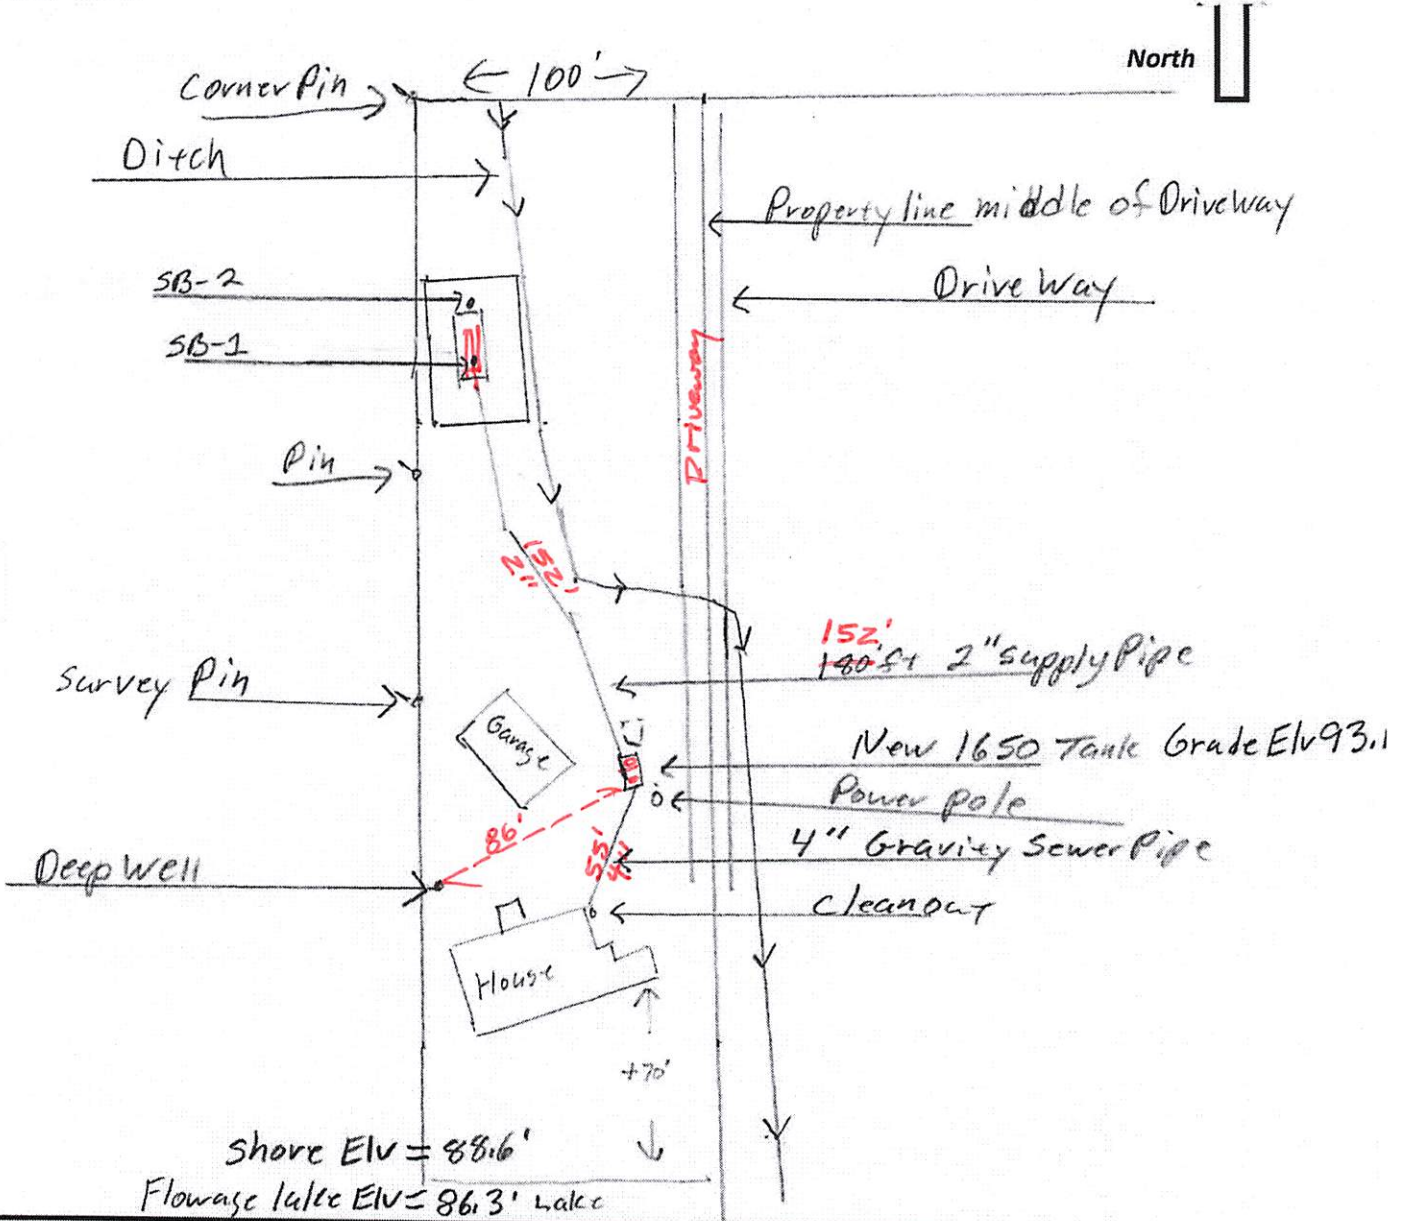 North
Corner Pin
100'
Ditch
Property line middle of Driveway
SB-2
Drive Way
SB-1
Driveway
Pin
152'
2"
152'
180'ft 2" supply Pipe
Survey Pin
Garage
New 1650 Tank Grade Elv 93.1
Power pole
86'
55'
4"
4" Gravity Sewer Pipe
Deep Well
Cleanout
House
+70'
Shore Elv = 88.6'
Flowage lake Elv = 86.3' Lake